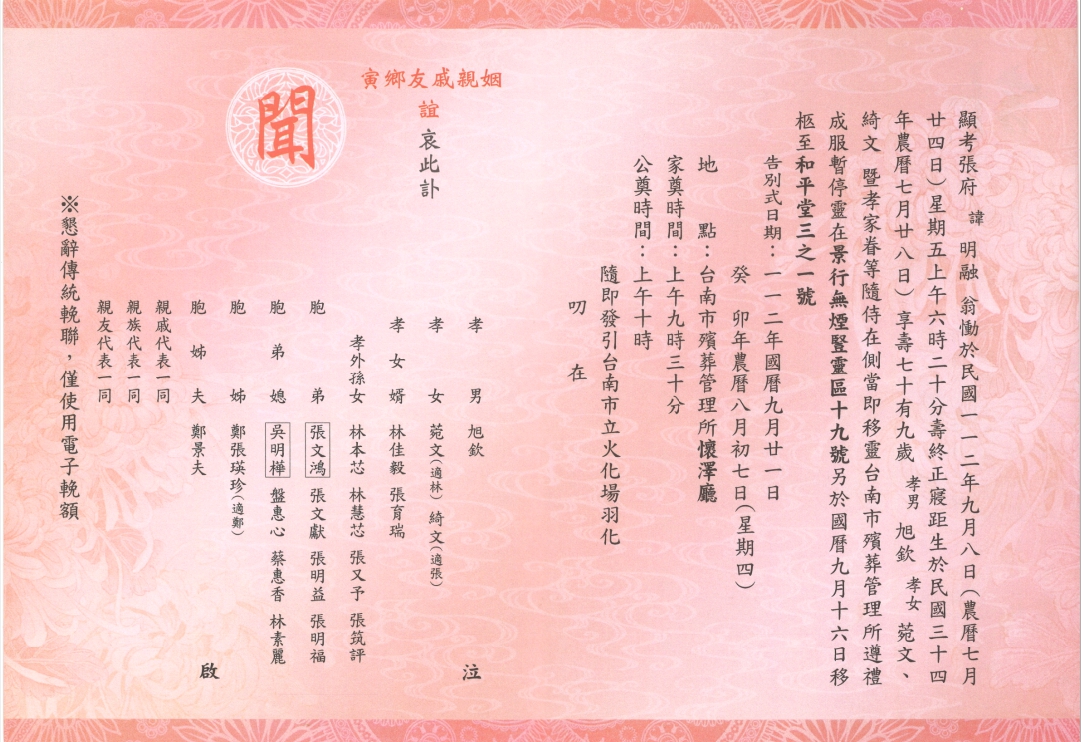 顯考張府 諱 明融 翁慟於民國一一二年九月八日(農曆七月
廿四日)星期五上午六時二十分壽終正寢距生於民國三十四
年農曆七月廿八日)享壽七十有九歲 孝男 旭欽 孝女 菀文、
綺文 暨孝家眷等隨侍在側當即移靈台南市殯葬管理所遵禮
成服暫停靈在景行無煙豎靈區十九號另於國曆九月十六日移
柩至和平堂三之一號
告別式日期:一一二年國曆九月廿一日
癸 卯年農曆八月初七日(星期四)
地 點:台南市殯葬管理所懷澤廳
家奠時間:上午九時三十分
公奠時間:上午十時
隨即發引台南市立火化場羽化
叨 在
姻親戚友鄉寅
誼 哀此訃
聞
孝 男 旭欽 泣
孝 女 菀文(適林) 綺文(適張)
孝 女 婿 林佳毅 張育瑞
孝外孫女 林本芯 林慧芯 張又予 張筑評
胞 弟 張文鴻 張文獻 張明益 張明福
胞 弟 媳 吳明樺 盤惠心 蔡惠香 林素麗
胞 姊 鄭張瑛珍(適鄭)
胞 姊 夫 鄭景夫 啟
親戚代表一同
親族代表一同
親友代表一同
※懇辭傳統輓聯,僅使用電子輓額